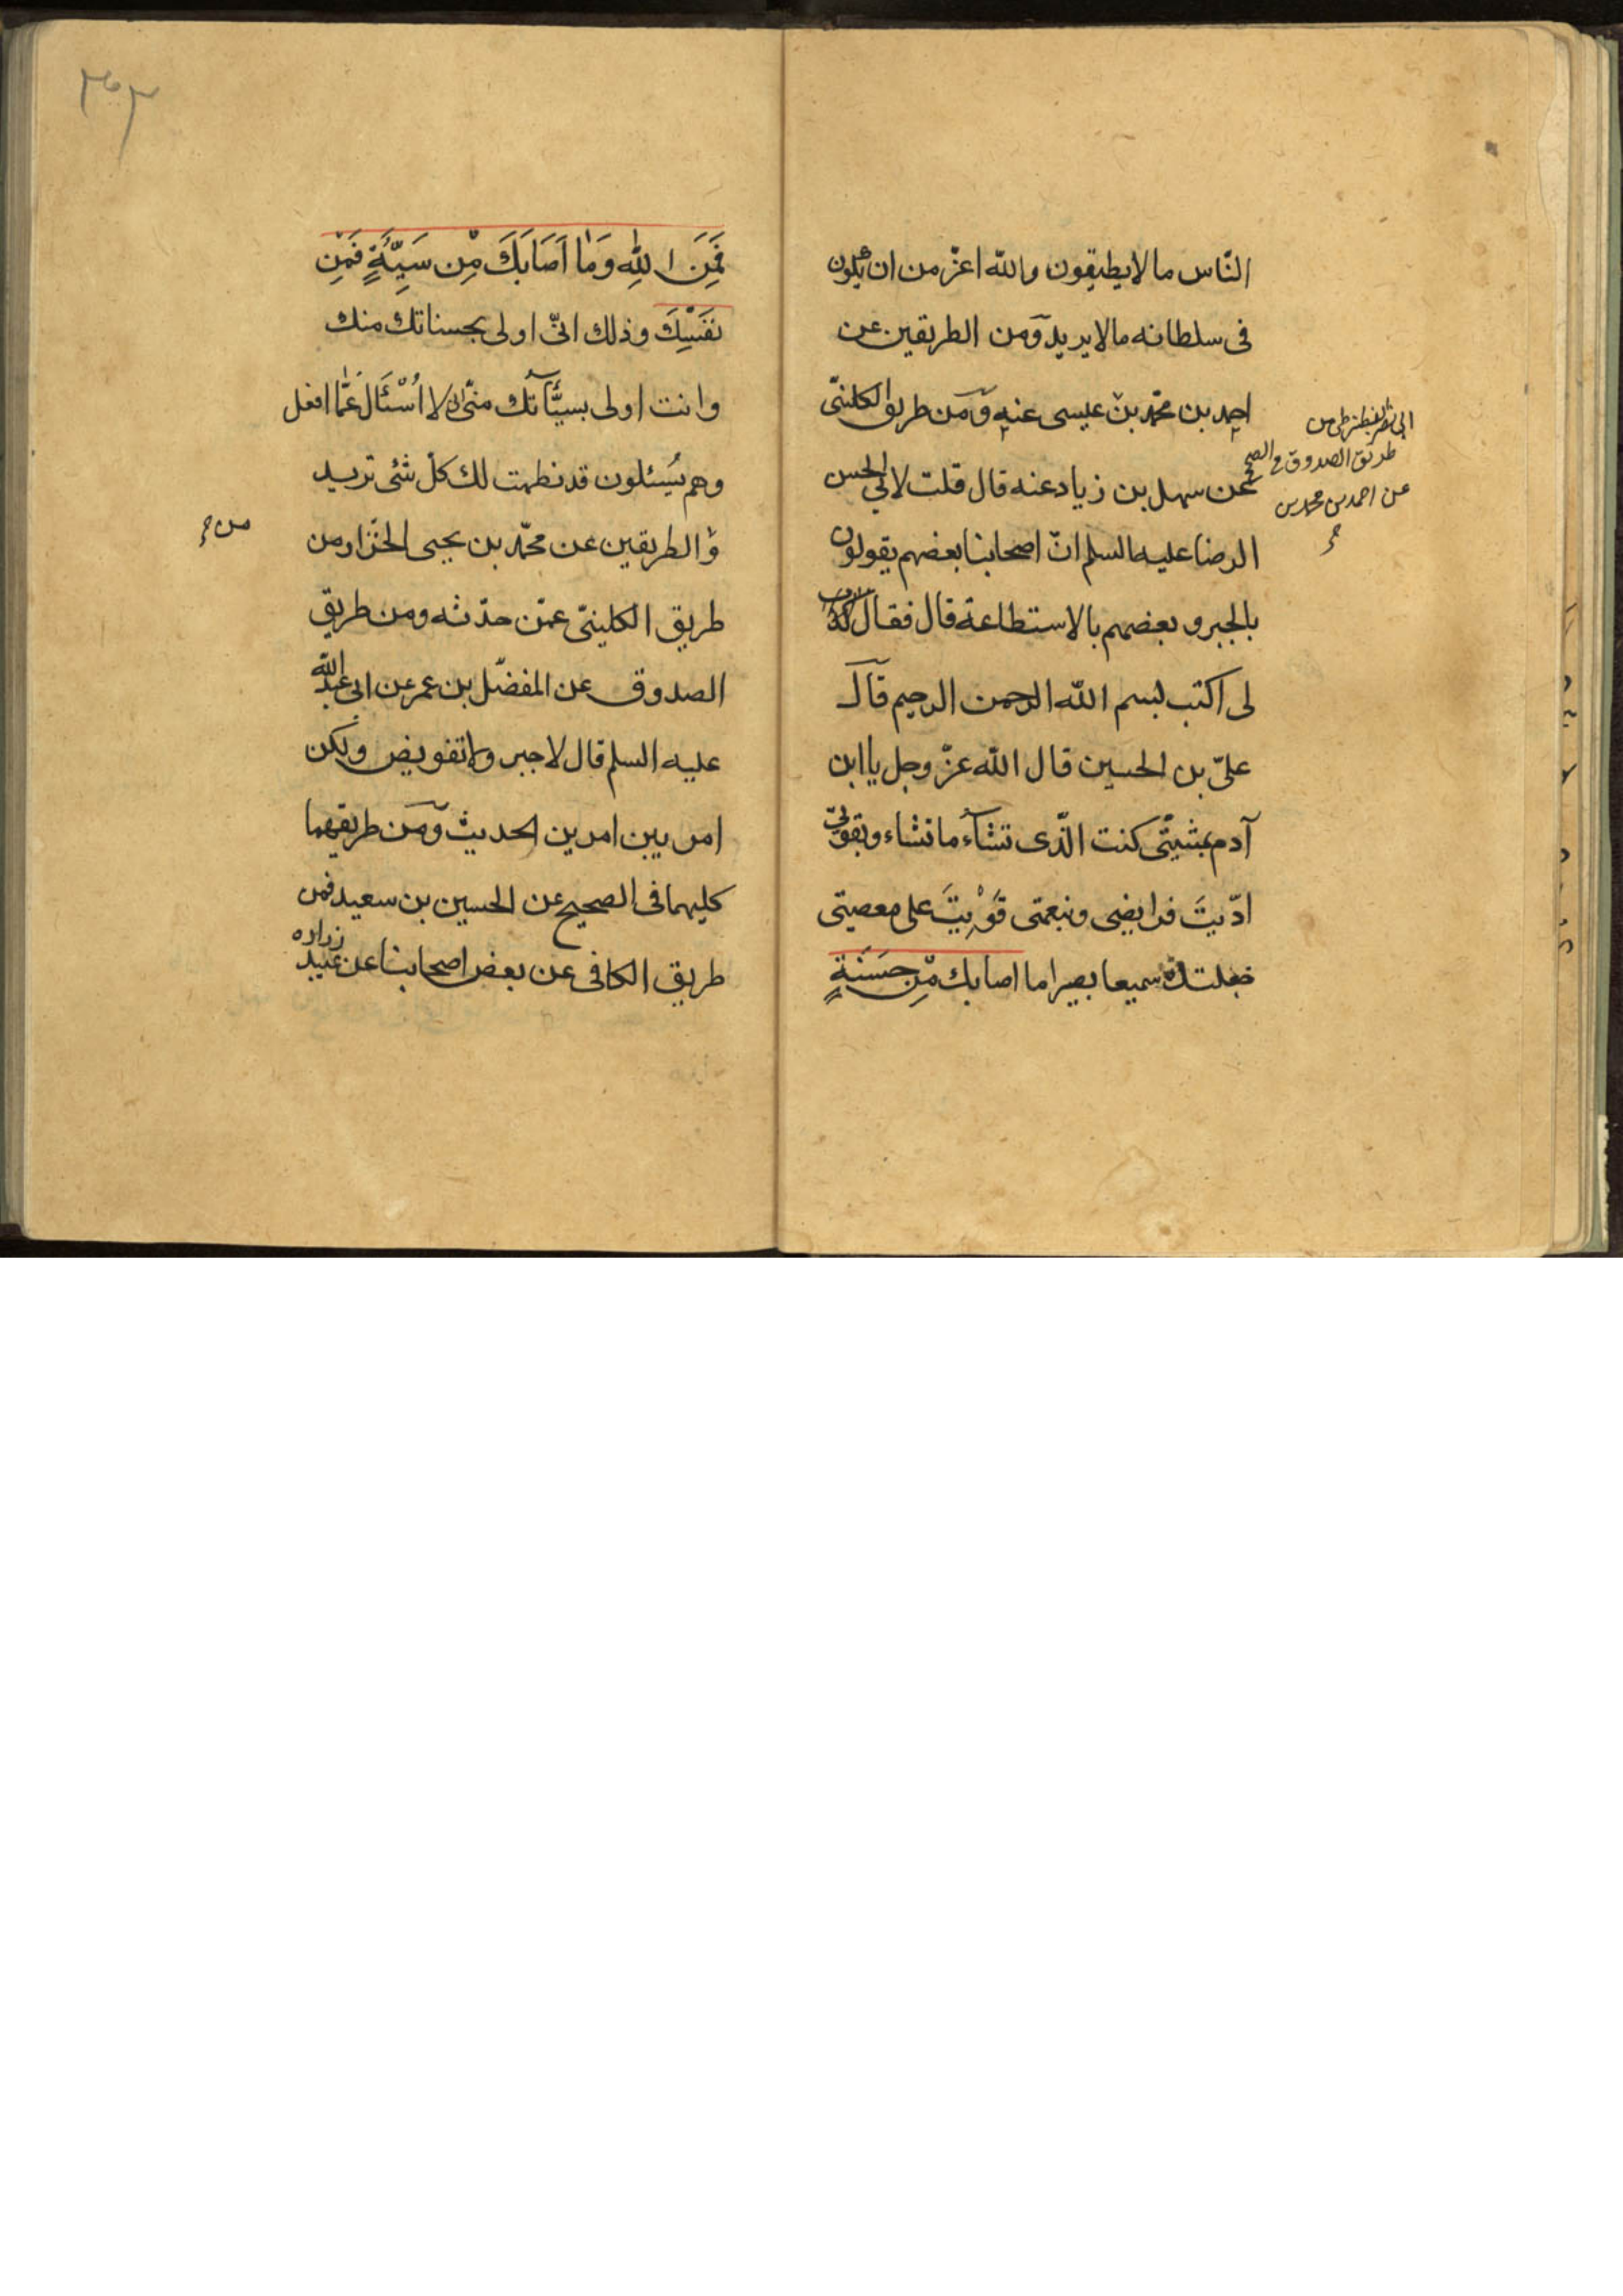 النّاس ما لا يطيقون والله اعزّ من ان يكون
فى سلطانه ما لا يريد ومن الطريقين عن
احمد بن محمّد بن عيسى عنه ومن طريق الكلينىّ
عن سهل بن زياد عنه قال قلت لابى الحسن
الرضا عليه السلم انّ اصحابنا بعضهم يقولون
بالجبر و بعضهم بالاستطاعة قال فقال
لى اكتب بسم الله الرحمن الرحيم قال
علىّ بن الحسين قال الله عزّ وجل يا ابن
آدم بمشيّتى كنت الّذى تشآء ما تشاء وبقوّتى
ادّيتَ فرايضى وبنعمتى قَوِيتَ على معصيتى
جعلتك سميعا بصيرا ما اصابك مِّن حَسَنَةٍ
ابى نصر البزنطى من
طريق الصدوق فى الصحيح
عن احمد بن محمد بن
٣٠٣
فَمِنَ اللهِ وَمٰا اَصَابَكَ مِّن سَيِّئَةٍ فَمِن
نَفْسِكَ وذلك انّى اولى بحسناتك منك
وانت اولى بسيّئآتك منّى انى لا اُسْئَالَ عَمّٰا افعل
وهم يُسئلون قد نظمت لك كلّ شئى تريد
و الطريقين عن محمّد بن يحيى الخزّاز ومن
طريق الكلينىّ عمّن حدّثه ومن طريق
الصدوق عن المفضّل بن عمر عن ابى عبد الله
عليه السلم قال لا جبر ولا تفويض ولكن
امر بين امرين الحديث ومن طريقهما
كليهما فى الصحيح عن الحسين بن سعيد فمن
طريق الكافى عن بعض اصحابنا عن عبيد زراره
من